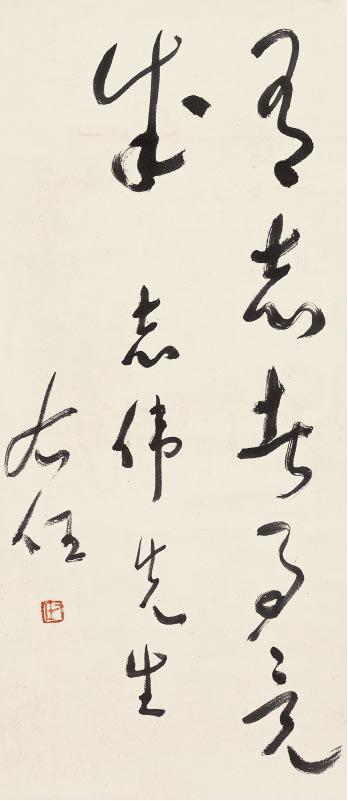 有志者事竟
成
志伟先生
右任